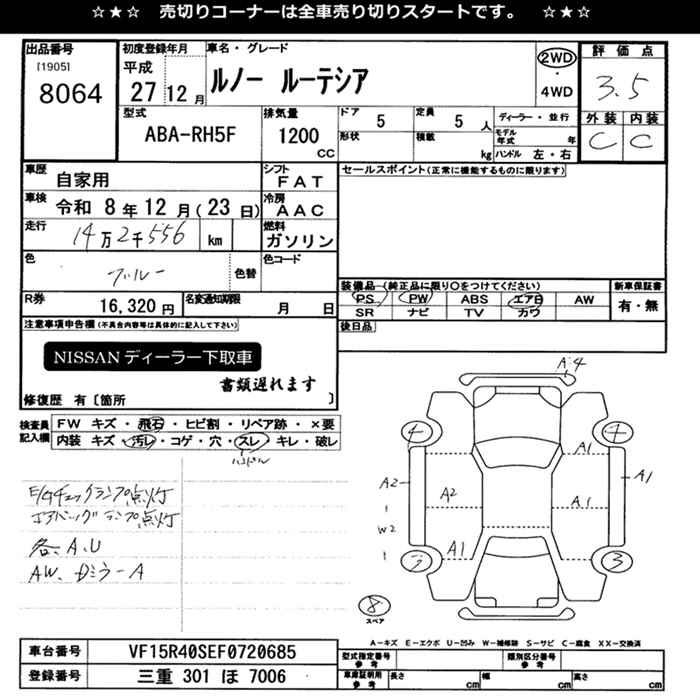 ☆★☆ 売切りコーナーは全車売り切りスタートです。 ☆★☆
出品番号 [1905] 8064
初度登録年月 平成 27 12 月
車名・グレード ルノー ルーテシア
2WD ・ 4WD
評価点 3.5
外装 内装
C C
型式 ABA-RH5F
排気量 1200 CC
ドア 5
形状
定員 5 人
積載 kg
ディーラー・並行
モデル年式 年
ハンドル 左・右
車歴 自家用
シフト FAT
セールスポイント(正常に機能するものに限ります)
車検 令和 8 年 12 月 (23 日)
冷房 AAC
走行 14万2千556 km
燃料 ガソリン
色 ブルー 色替
色コード
R券 16,320 円
名変通知期限 月 日
装備品 (純正品に限り○をつけてください)
PS PW ABS エアB AW
SR ナビ TV カワ
新車保証書 有・無
後日品
注意事項申告欄(不具合内容等は具体的に記入して下さい)
NISSANディーラー下取車
書類遅れます
修復歴 有〔箇所 〕
検査員記入欄
FW キズ・飛石・ヒビ割・リペア跡・×要
内装 キズ・汚レ・コゲ・穴・スレ・キレ・破レ
ハンドル
E/gチェックランプ点灯
エアバッグランプ点灯
各、A.U
AW、Dミラー A
A4
4 4
A1
A2 A2 A1 A1
W2
A1
3 3
8
スペア
A-キズ E-エクボ U-凹み W-補修跡 S-サビ C-腐食 XX-交換済
車台番号 VF15R40SEF0720685
登録番号 三重 301 ほ 7006
型式指定番号 参考
類別区分番号 参考
車庫証明用 参考 長さ cm 幅 cm 高さ cm